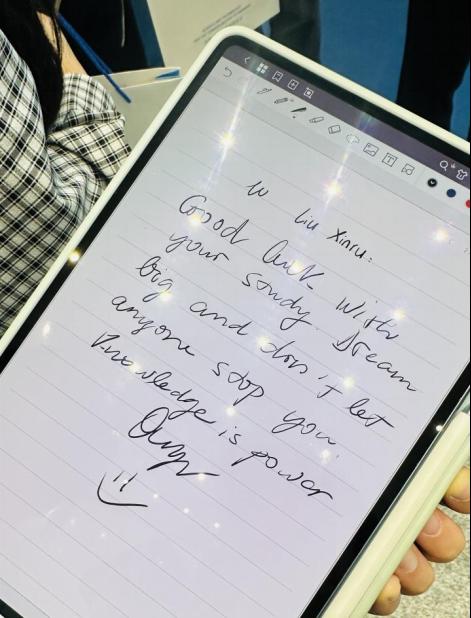 to Liu Xinru:
Good luck with
your study. Dream
big and don't let
anyone stop you
Knowledge is power